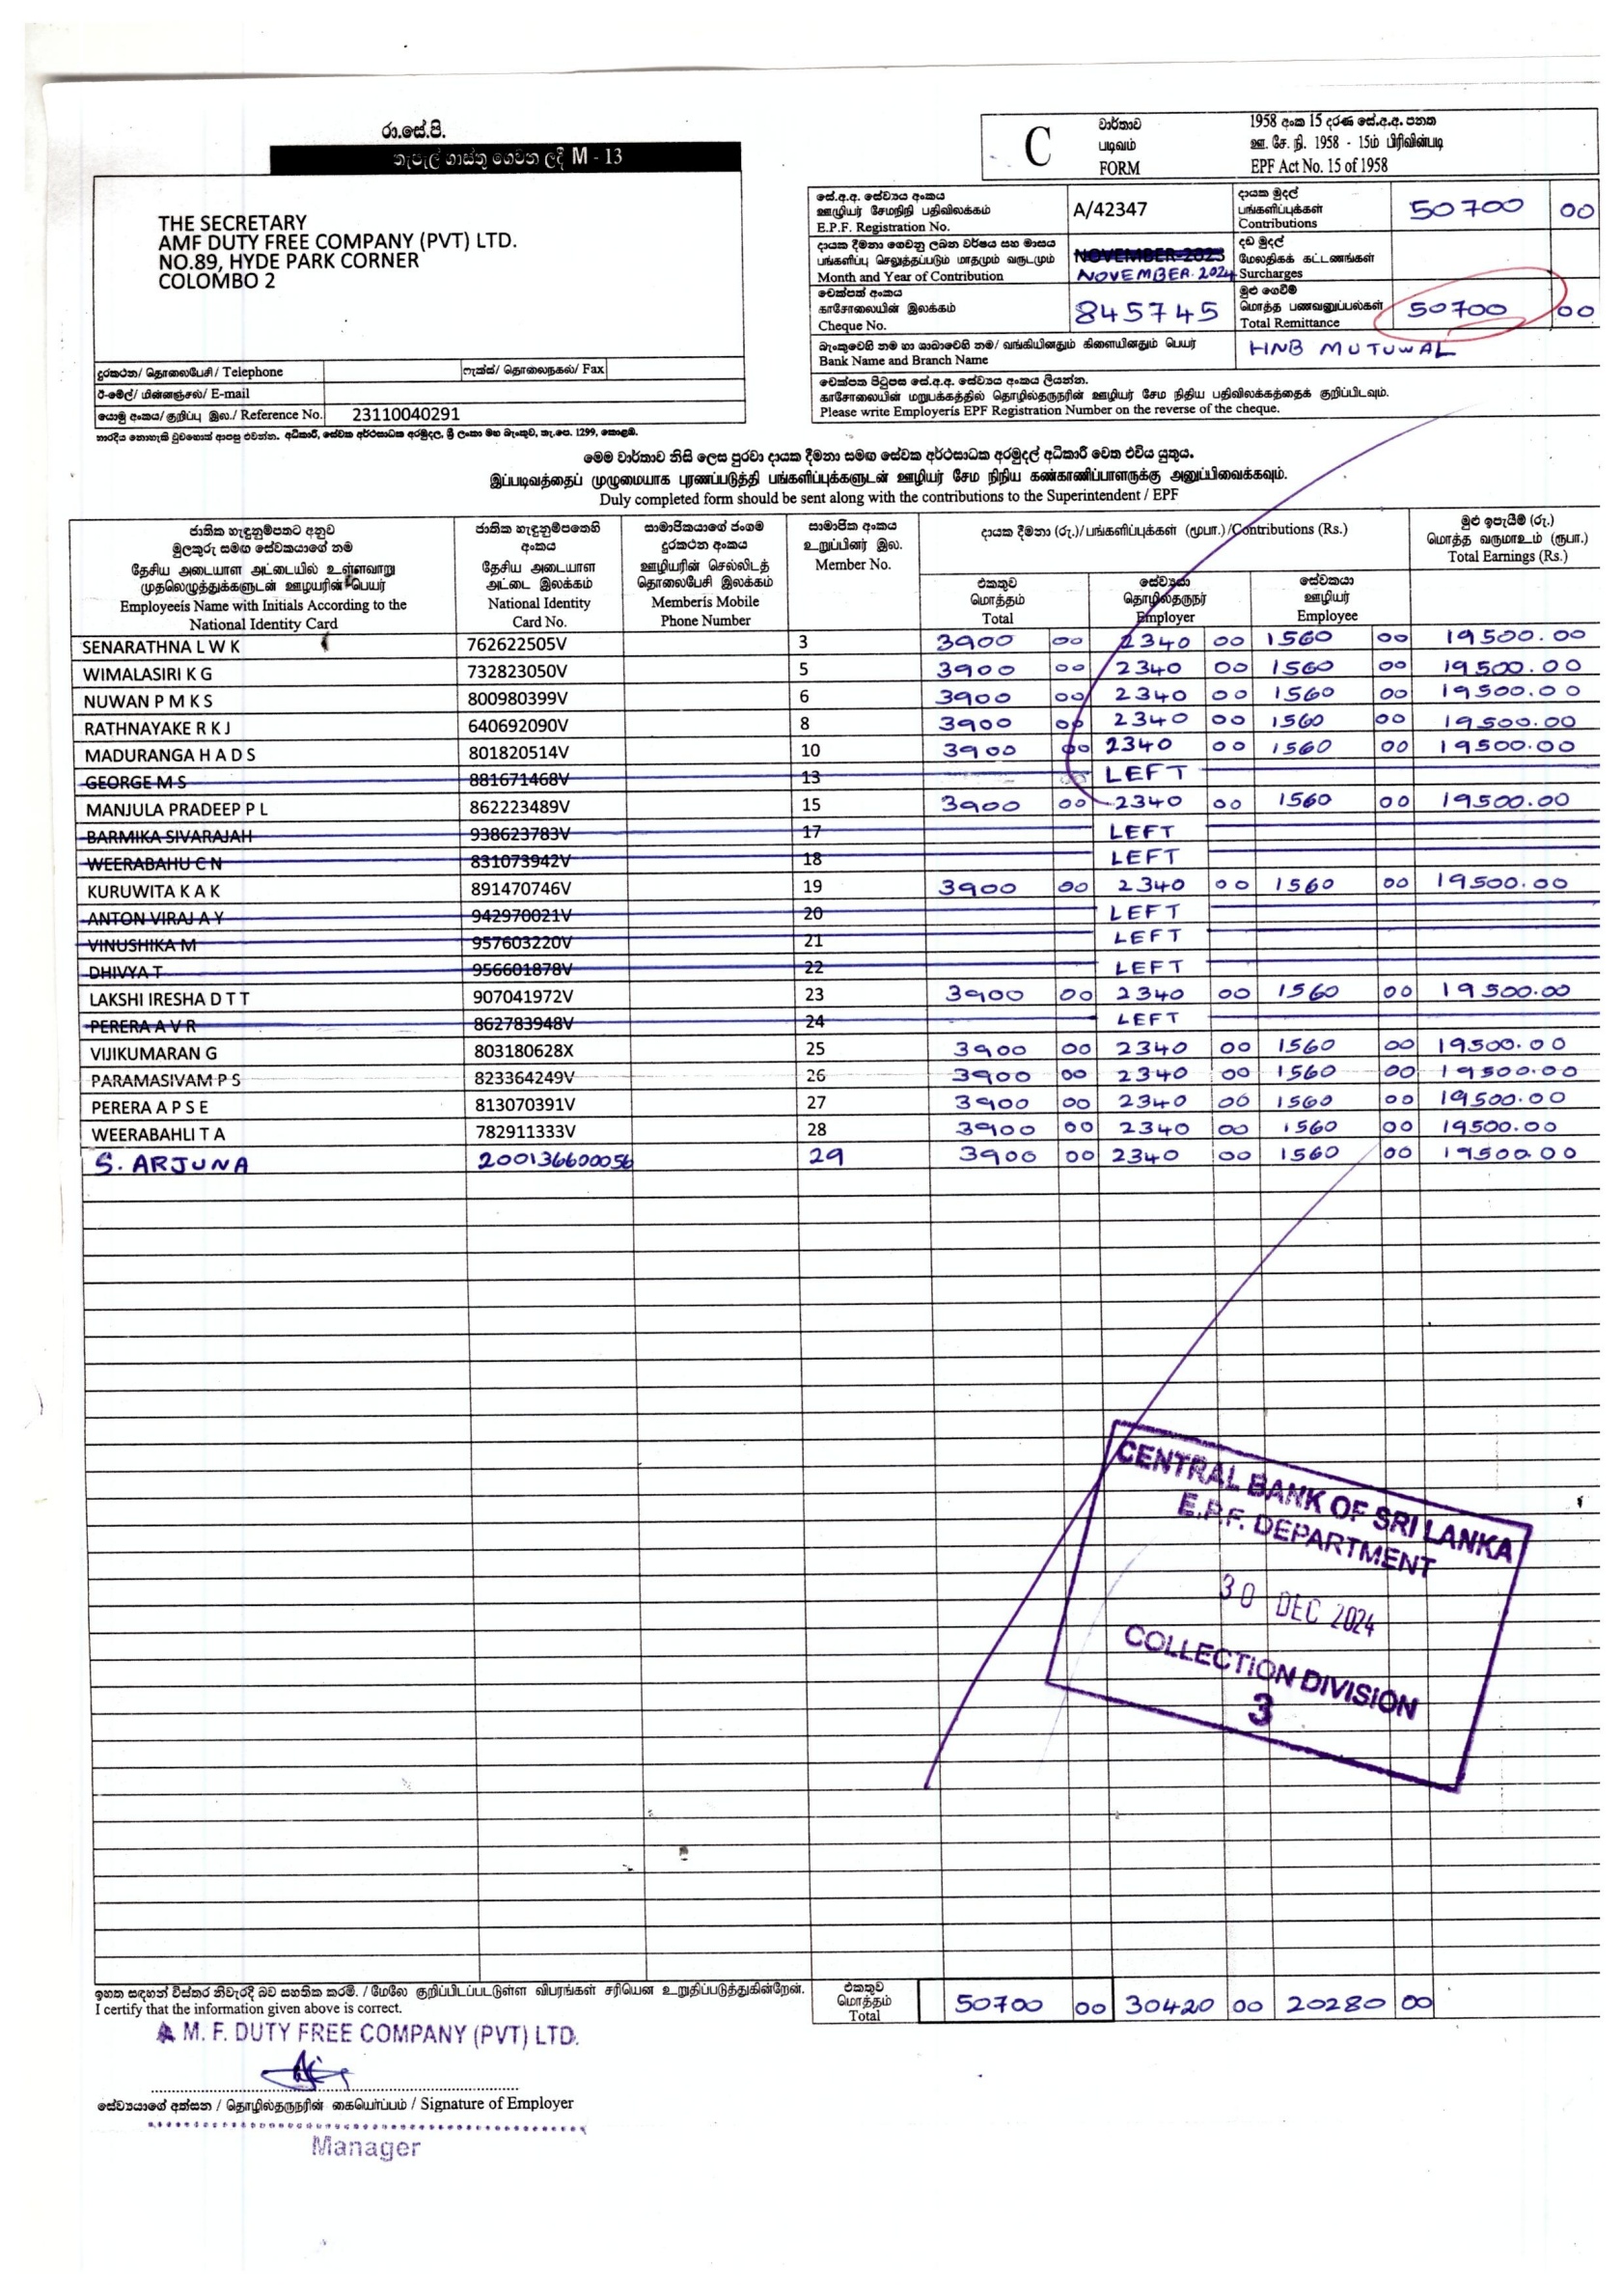 රා.සේ.පි.
තැපැල් ගාස්තු ගෙවන ලදි M - 13
C
වාර්තාව
படிவம்
FORM
1958 අංක 15 දරණ සේ.අ.අ. පනත
ஊ. சே. நி. 1958 - 15ம் பிரிவின்படி
EPF Act No. 15 of 1958
THE SECRETARY
AMF DUTY FREE COMPANY (PVT) LTD.
NO.89, HYDE PARK CORNER
COLOMBO 2
දුරකථන/ தொலைபேசி / Telephone
ෆැක්ස්/ தொலைநகல்/ Fax
ඊ-මේල්/ மின்னஞ்சல்/ E-mail
යොමු අංකය/ குறிப்பு இல./ Reference No. 23110040291
සේ.අ.අ. සේව්‍යය අංකය
ஊழியர் சேமநிதி பதிவிலக்கம்
E.P.F. Registration No.
A/42347
දායක මුදල්
பங்களிப்புக்கள்
Contributions
50700 00
දායක දීමනා ගෙවනු ලබන වර්ෂය සහ මාසය
பங்களிப்பு செலுத்தப்படும் மாதமும் வருடமும்
Month and Year of Contribution
NOVEMBER-2023
NOVEMBER.2024
දඩ මුදල්
மேலதிகக் கட்டணங்கள்
Surcharges
චෙක්පත් අංකය
காசோலையின் இலக்கம்
Cheque No.
845745
මුළු ගෙවීම්
மொத்த பணவனுப்பல்கள்
Total Remittance
50700 00
බැංකුවෙහි නම හා ශාඛාවෙහි නම/ வங்கியினதும் கிளையினதும் பெயர்
Bank Name and Branch Name
HNB MUTUWAL
චෙක්පත පිටුපස සේ.අ.අ. සේව්‍යය අංකය ලියන්න.
காசோலையின் மறுபக்கத்தில் தொழில்தருநரின் ஊழியர் சேம நிதிய பதிவிலக்கத்தைக் குறிப்பிடவும்.
Please write Employerís EPF Registration Number on the reverse of the cheque.
භාරදිය නොහැකි වුවහොත් ආපසු එවන්න. අධිකාරී, සේවක අර්ථසාධක අරමුදල, ශ්‍රී ලංකා මහ බැංකුව, තැ.පෙ. 1299, කොළඹ.
මෙම වාර්තාව නිසි ලෙස පුරවා දායක දීමනා සමඟ සේවක අර්ථසාධක අරමුදල් අධිකාරී වෙත එවිය යුතුය.
இப்படிவத்தைப் முழுமையாக பூரணப்படுத்தி பங்களிப்புக்களுடன் ஊழியர் சேம நிநிய கண்காணிப்பாளருக்கு அனுப்பிவைக்கவும்.
Duly completed form should be sent along with the contributions to the Superintendent / EPF
ජාතික හැඳුනුම්පතට අනුව
මුලකුරු සමඟ සේවකයාගේ නම
தேசிய அடையாள அட்டையில் உள்ளவாறு
முதலெழுத்துக்களுடன் ஊழயரின் பெயர்
Employeeís Name with Initials According to the
National Identity Card
ජාතික හැඳුනුම්පතෙහි
අංකය
தேசிய அடையாள
அட்டை இலக்கம்
National Identity
Card No.
සාමාජිකයාගේ ජංගම
දුරකථන අංකය
ஊழியரின் செல்லிடத்
தொலைபேசி இலக்கம்
Memberís Mobile
Phone Number
සාමාජික අංකය
உறுப்பினர் இல.
Member No.
දායක දීමනා (රු.)/ பங்களிப்புக்கள் (ரூபா.) /Contributions (Rs.)
මුළු ඉපැයීම් (රු.)
மொத்த வருமாஉம் (ரூபா.)
Total Earnings (Rs.)
එකතුව
மொத்தம்
Total
සේව්‍යයා
தொழில்தருநர்
Employer
සේවකයා
ஊழியர்
Employee
SENARATHNA L W K 762622505V 3 3900 00 2340 00 1560 00 19500.00
WIMALASIRI K G 732823050V 5 3900 00 2340 00 1560 00 19500.00
NUWAN P M K S 800980399V 6 3900 00 2340 00 1560 00 19500.00
RATHNAYAKE R K J 640692090V 8 3900 00 2340 00 1560 00 19500.00
MADURANGA H A D S 801820514V 10 3900 00 2340 00 1560 00 19500.00
GEORGE M S 881671468V 13 LEFT
MANJULA PRADEEP P L 862223489V 15 3900 00 2340 00 1560 00 19500.00
BARMIKA SIVARAJAH 938623783V 17 LEFT
WEERABAHU C N 831073942V 18 LEFT
KURUWITA K A K 891470746V 19 3900 00 2340 00 1560 00 19500.00
ANTON VIRAJ A Y 942970021V 20 LEFT
VINUSHIKA M 957603220V 21 LEFT
DHIVYA T 956601878V 22 LEFT
LAKSHI IRESHA D T T 907041972V 23 3900 00 2340 00 1560 00 19500.00
PERERA A V R 862783948V 24 LEFT
VIJIKUMARAN G 803180628X 25 3900 00 2340 00 1560 00 19500.00
PARAMASIVAM P S 823364249V 26 3900 00 2340 00 1560 00 19500.00
PERERA A P S E 813070391V 27 3900 00 2340 00 1560 00 19500.00
WEERABAHLI T A 782911333V 28 3900 00 2340 00 1560 00 19500.00
S. ARJUNA 200136600056 29 3900 00 2340 00 1560 00 19500.00
CENTRAL BANK OF SRI LANKA
E.P.F. DEPARTMENT
30 DEC 2024
COLLECTION DIVISION
3
ඉහත සඳහන් විස්තර නිවැරදි බව සහතික කරමි. / மேலே குறிப்பிடப்பட்டுள்ள விபரங்கள் சரியென உறுதிப்படுத்துகின்றேன்.
I certify that the information given above is correct.
එකතුව
மொத்தம்
Total
50700 00 30420 00 20280 00
A. M. F. DUTY FREE COMPANY (PVT) LTD.
සේව්‍යයාගේ අත්සන / தொழில்தருநரின் கையொப்பம் / Signature of Employer
Manager